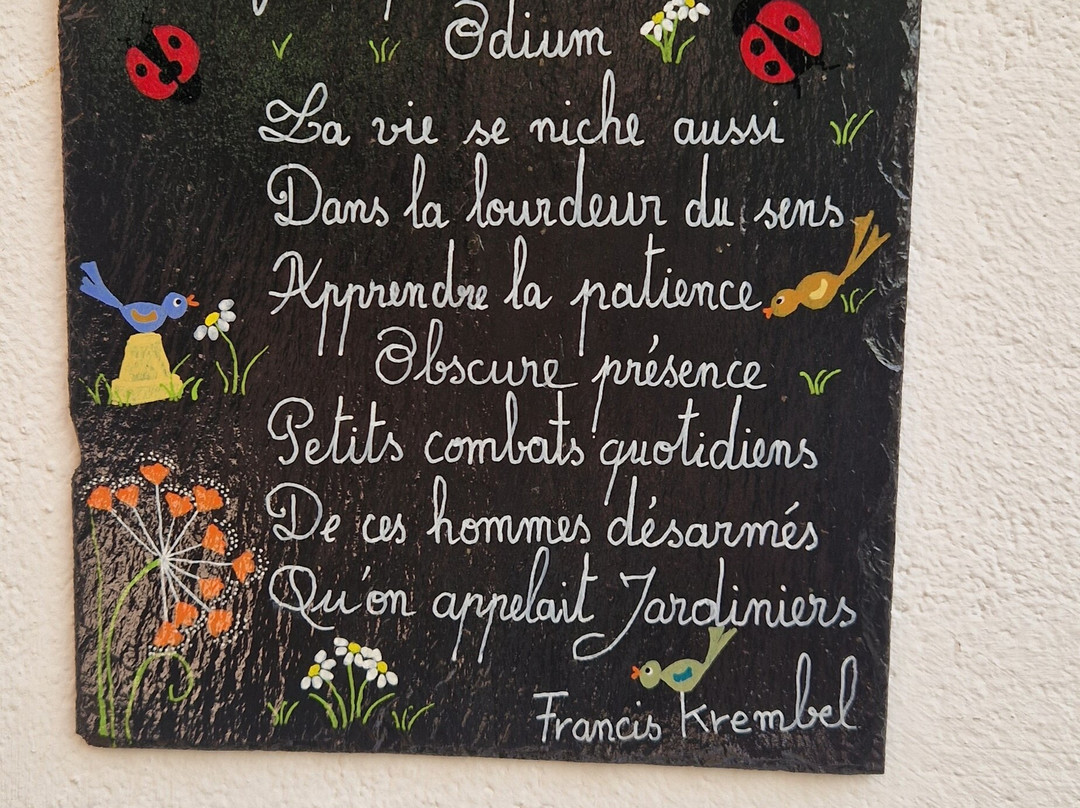 Odium
La vie se niche aussi
Dans la lourdeur du sens
Apprendre la patience
Obscure présence
Petits combats quotidiens
De ces hommes désarmés
Qu'on appelait Jardiniers
Francis Krembel